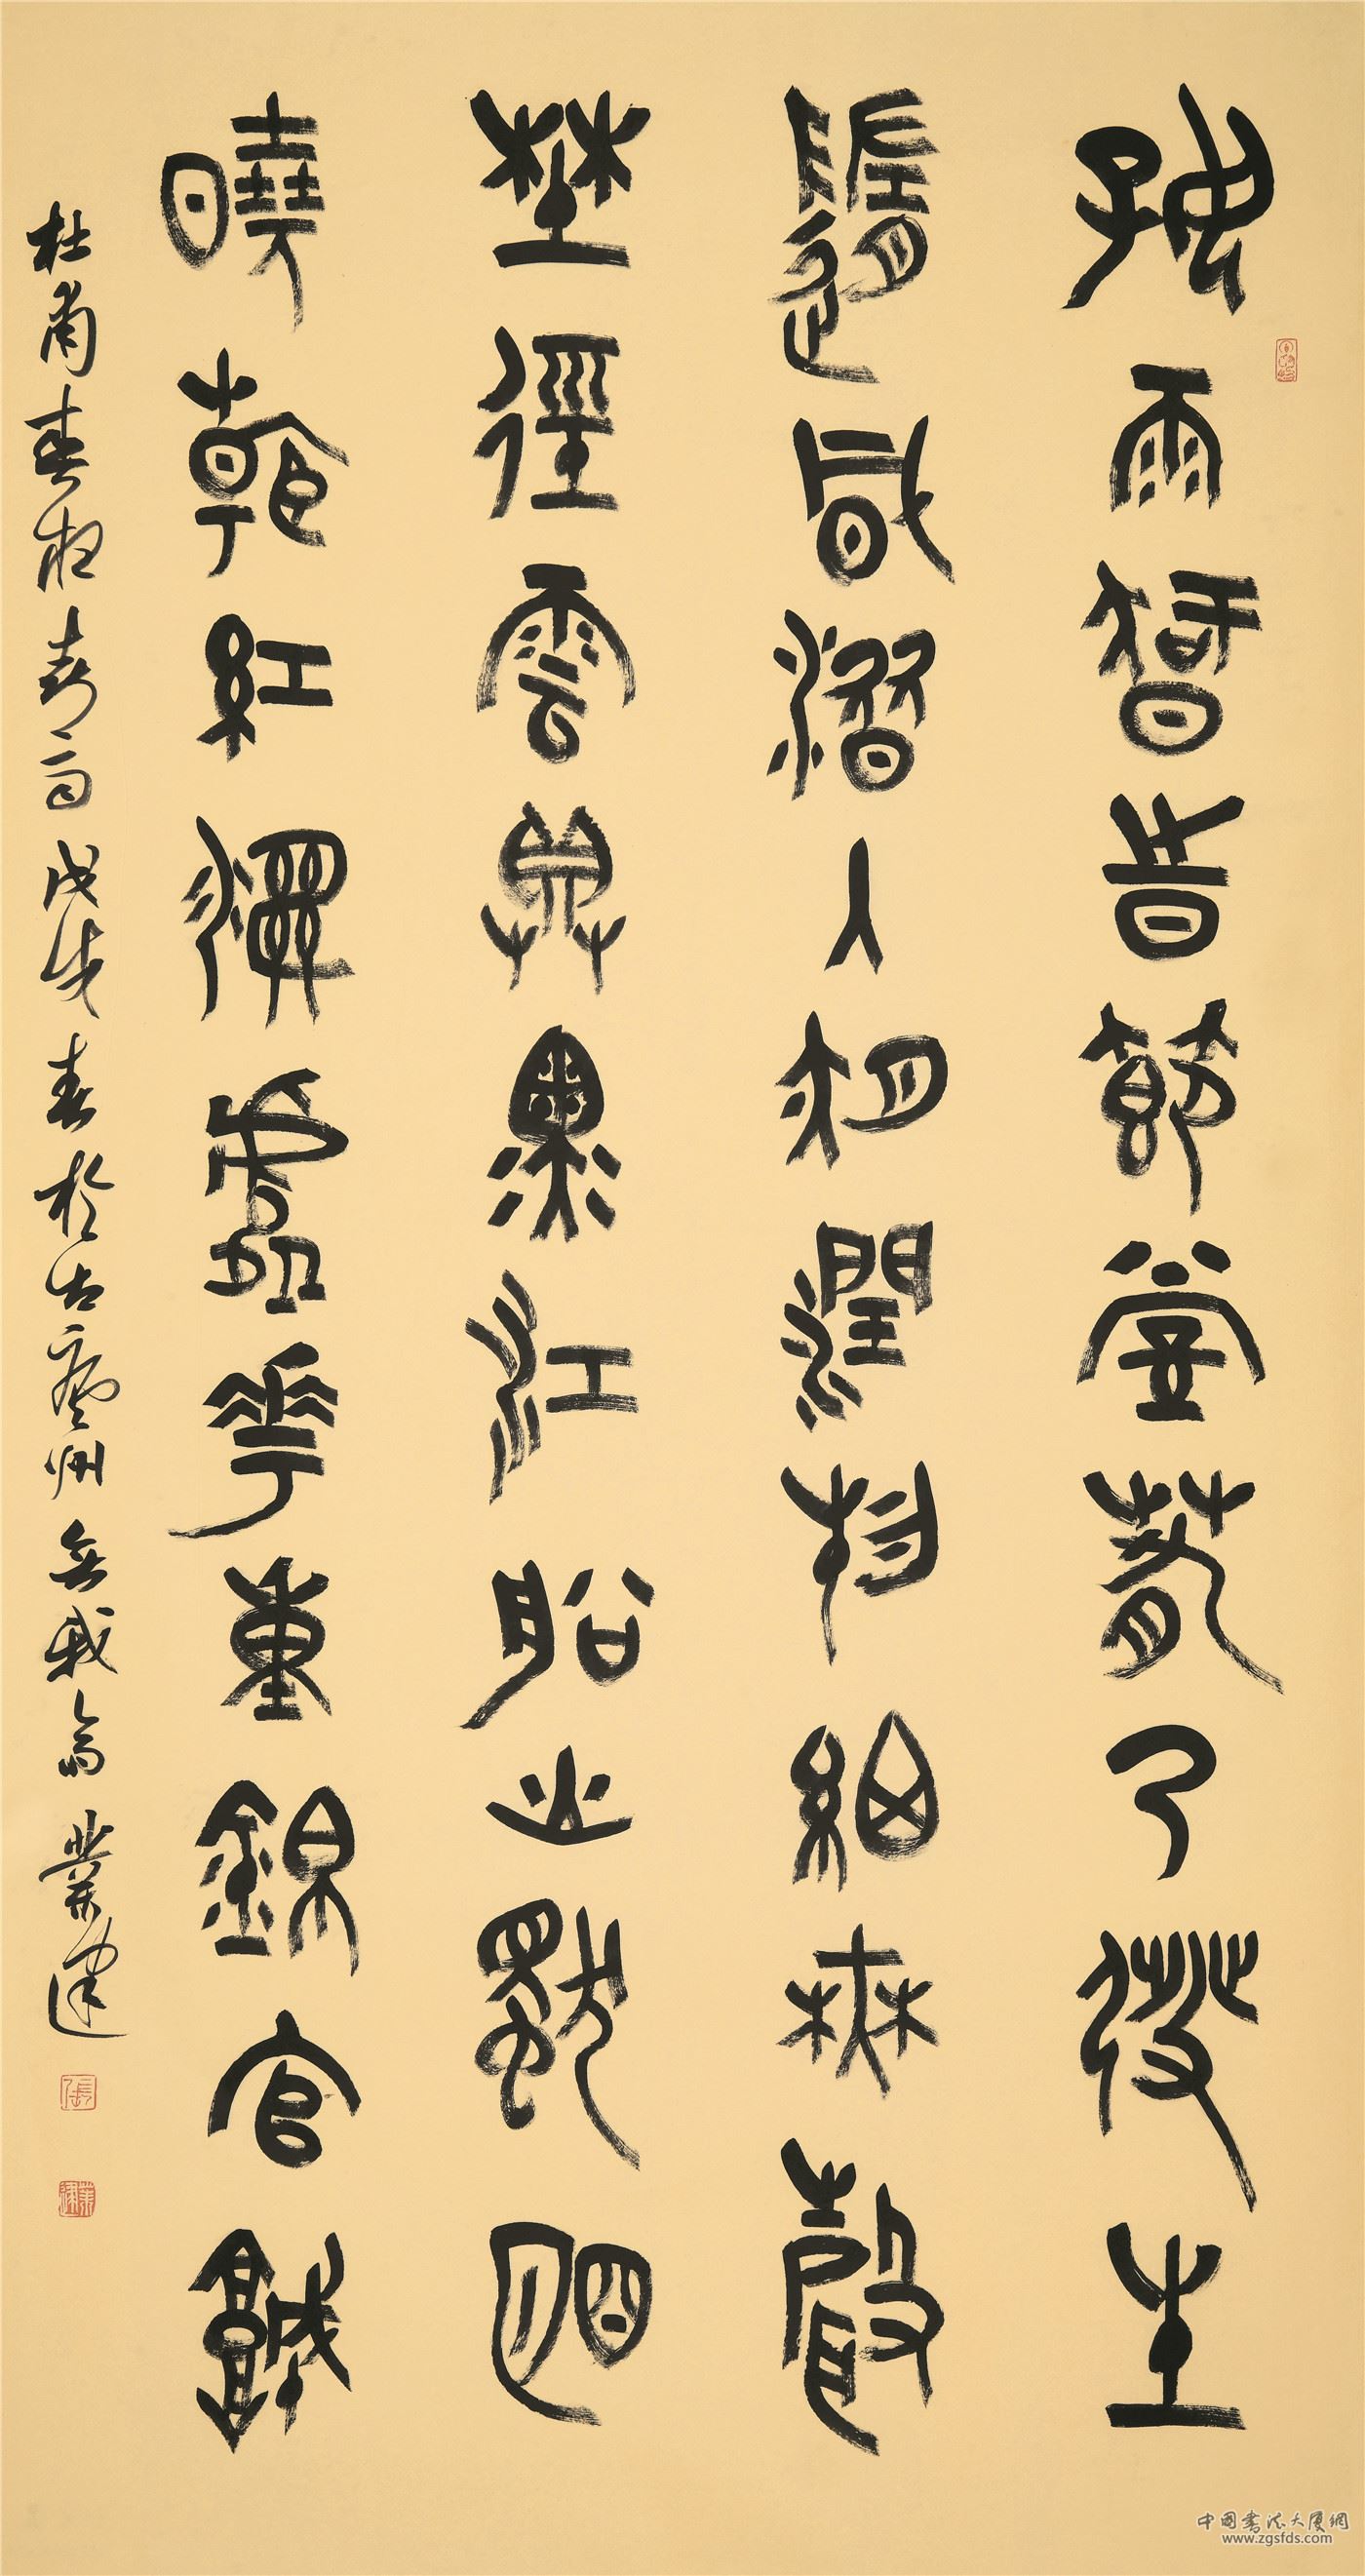 好雨知時節當春乃發生
隨風潛入夜潤物細無聲
野徑雲俱黑江船火獨明
曉看紅濕處花重錦官城
杜甫春夜喜雨戊戌春於古虔州無我齋業建
張
業建
中国书法大厦網
www.zgsfds.com